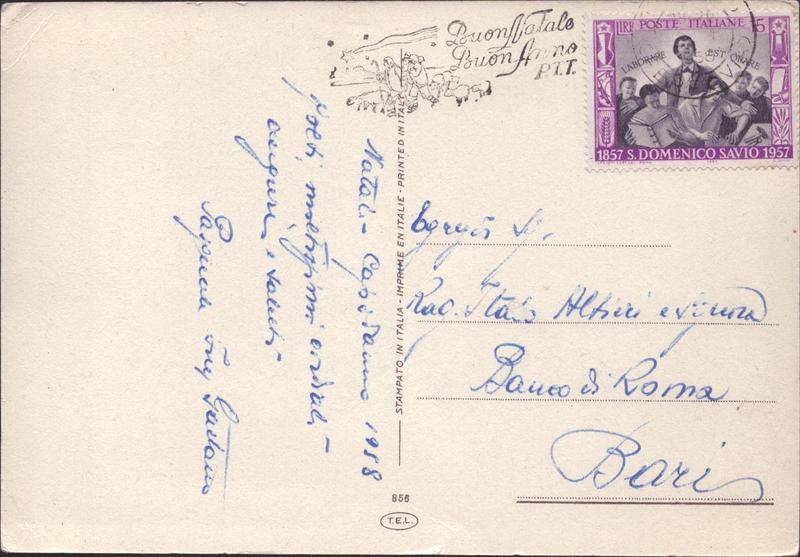 Buon Natale
Buon Anno
P.T.T.
LIRE POSTE ITALIANE 15
LABORARE EST ORARE
1857 S. DOMENICO SAVIO 1957
Natale - Capodanno 1958
moltissimi cordiali
auguri e saluti
Ing Gaetano
STAMPATO IN ITALIA - IMPRIME EN ITALIE - PRINTED IN ITALY
Egregio Sig.
Rag. Italo Altieri e Signora
Banco di Roma
Bari
856
T.E.L.